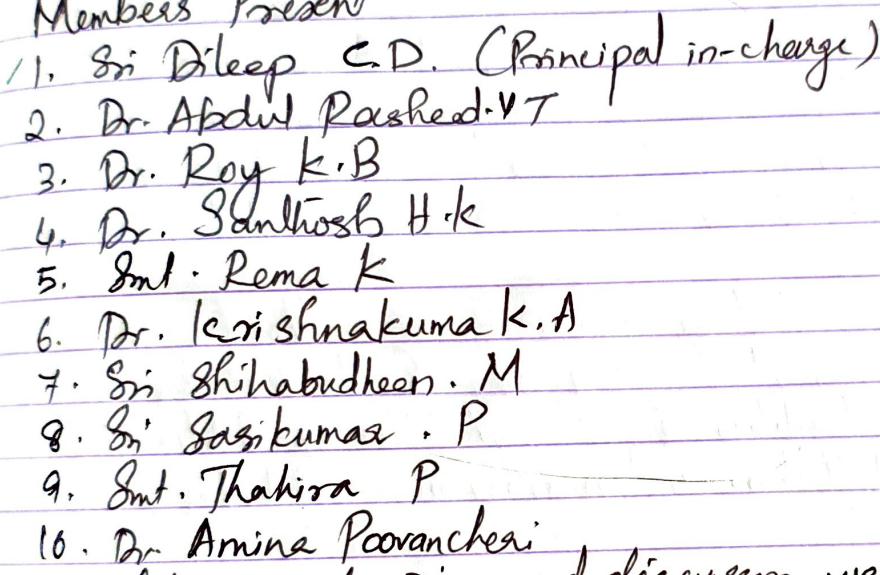 Members Present
1. Sri Dileep C.D. (Principal in-charge)
2. Dr. Abdul Rasheed.V T
3. Dr. Roy K.B
4. Dr. Santhosh H.K
5. Smt. Rema K
6. Dr. Krishnakuma K.A
7. Sri Shihabudheen. M
8. Sri Sasikumar. P
9. Smt. Thahira P
10. Dr. Amina Poovancheri